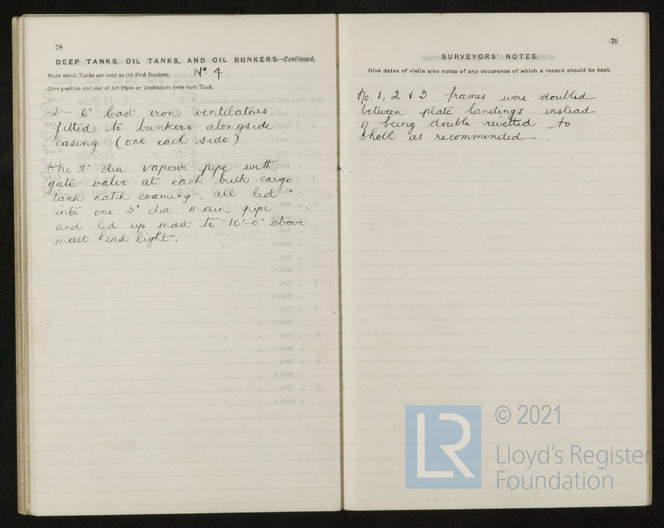 78
DEEP TANKS, OIL TANKS, AND OIL BUNKERS—Continued.
State which Tanks are used as Oil Fuel Bunkers. No. 4
Give position and size of Air Pipes or Ventilators from each Tank.
2 - 6" cast iron ventilators
fitted to bunkers alongside
casing (one each side)
One 2" dia. vapour pipe with
gate valve at each bulk cargo
tank hatch coaming, all led
into one 3" dia. main pipe
and led up mast to 10'-0" above
mast head light.
79
SURVEYORS' NOTES.
Give dates of visits also notes of any occurence of which a record should be kept.
No. 1, 2 & 3 frames were doubled
between plate landings instead
of being double rivetted to
shell as recommended.
LR
© 2021
Lloyd's Register
Foundation